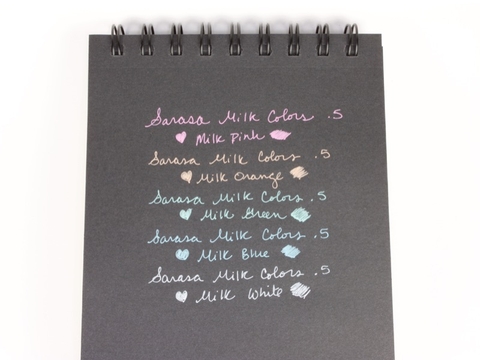 Sarasa Milk Colors .5
Milk Pink
Sarasa Milk Colors .5
Milk Orange
Sarasa Milk Colors .5
Milk Green
Sarasa Milk Colors .5
Milk Blue
Sarasa Milk Colors .5
Milk White